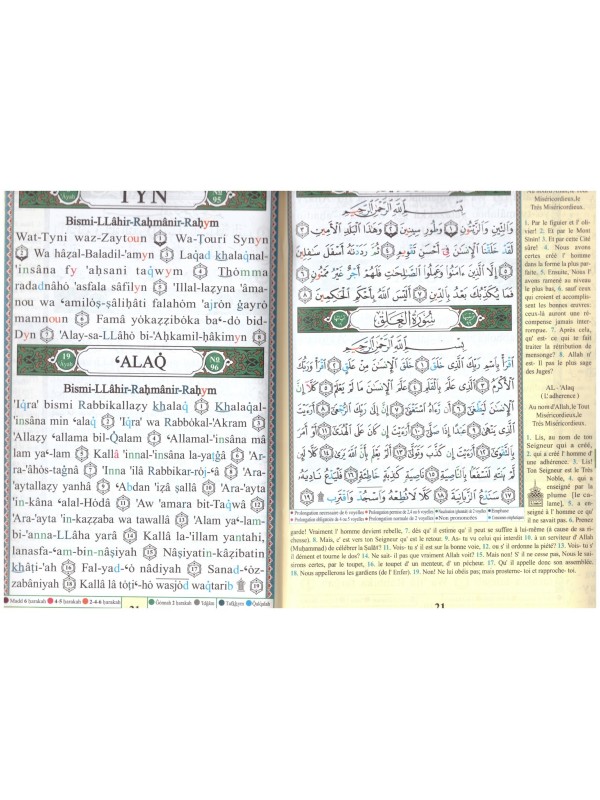 TYN
N0. 95
Bismi-LLâhir-Raḥmânir-Raḥym
Wat-Tyni waz-Zaytoun ① Wa-Ṭouri Synyn
② Wa hâẓal-Baladil-'amyn ③ Laqad khalaqnal-
'insâna fy 'aḥsani taqwym ④ Thomma
radadnâhô 'asfala sâfilyn ⑤ 'Illal-laẓyna 'âma-
nou wa 'amilôṣ-ṣâliḥâti falahôm 'ajrôn ğayrô
mamnoun ⑥ Famâ yôkaẓẓibôka ba'-dô bid-
Dyn ⑦ 'Alay-sa-LLâhô bi-'Aḥkamil-ḥâkimyn ⑧
19 Ayah
'ALAQ
N0. 96
Bismi-LLâhir-Raḥmânir-Raḥym
'Iqra' bismi Rabbikallaẓy khalaq ① Khalaqal-
'insâna min 'alaq ② 'Iqra' wa Rabbôkal-'Akram ③
'Allaẓy 'allama bil-Qalam ④ 'Allamal-'insâna mâ
lam ya'-lam ⑤ Kallâ 'innal-'insâna la-yaṭğâ ⑥ 'Ar-
ra-'âhôs-tağnâ ⑦ 'Inna 'ilâ Rabbikar-rôj-'â ⑧ 'Ara-
'aytallaẓy yanhâ ⑨ 'Abdan 'iẓâ ṣallâ ⑩ 'Ara-'ayta
'in-kâna 'alal-Hôdâ ⑪ 'Aw 'amara bit-Taqwâ ⑫
'Ara-'ayta 'in-kaẓẓaba wa tawallâ ⑬ 'Alam ya'-lam-
bi-'anna-LLâha yarâ ⑭ Kallâ la-'illam yantahi,
lanasfa-'am-bin-nâṣiyah ⑮ Nâṣiyatin-kâẓibatin
khâṭi-'ah ⑯ Fal-yad-'ô nâdiyah ⑰ Sanad-'ôz-
zabâniyah ⑱ Kallâ lâ tôṭi'-hô wasjôd waqtarib ⑲
Madd 6 ḥarakah 4-5 ḥarakah 2-4-6 ḥarakah Ġonnah 2 ḥarakah Tafkhym Qalqalah
بِسْمِ اللَّهِ الرَّحْمَٰنِ الرَّحِيمِ
وَالتِّينِ وَالزَّيْتُونِ ١ وَطُورِ سِينِينَ ٢ وَهَٰذَا الْبَلَدِ الْأَمِينِ ٣
لَقَدْ خَلَقْنَا الْإِنسَانَ فِي أَحْسَنِ تَقْوِيمٍ ٤ ثُمَّ رَدَدْنَاهُ أَسْفَلَ سَافِلِينَ
٥ إِلَّا الَّذِينَ آمَنُوا وَعَمِلُوا الصَّالِحَاتِ فَلَهُمْ أَجْرٌ غَيْرُ مَمْنُونٍ ٦
فَمَا يُكَذِّبُكَ بَعْدُ بِالدِّينِ ٧ أَلَيْسَ اللَّهُ بِأَحْكَمِ الْحَاكِمِينَ ٨
سُورَةُ الْعَلَقِ
بِسْمِ اللَّهِ الرَّحْمَٰنِ الرَّحِيمِ
اقْرَأْ بِاسْمِ رَبِّكَ الَّذِي خَلَقَ ١ خَلَقَ الْإِنسَانَ مِنْ عَلَقٍ ٢ اقْرَأْ وَرَبُّكَ
الْأَكْرَمُ ٣ الَّذِي عَلَّمَ بِالْقَلَمِ ٤ عَلَّمَ الْإِنسَانَ مَا لَمْ يَعْلَمْ ٥ كَلَّا إِنَّ
الْإِنسَانَ لَيَطْغَىٰ ٦ أَن رَّآهُ اسْتَغْنَىٰ ٧ إِنَّ إِلَىٰ رَبِّكَ الرُّجْعَىٰ ٨ أَرَأَيْتَ
الَّذِي يَنْهَىٰ ٩ عَبْدًا إِذَا صَلَّىٰ ١٠ أَرَأَيْتَ إِن كَانَ عَلَى الْهُدَىٰ ١١ أَوْ أَمَرَ
بِالتَّقْوَىٰ ١٢ أَرَأَيْتَ إِن كَذَّبَ وَتَوَلَّىٰ ١٣ أَلَمْ يَعْلَم بِأَنَّ اللَّهَ يَرَىٰ ١٤ كَلَّا لَئِن
لَّمْ يَنتَهِ لَنَسْفَعًا بِالنَّاصِيَةِ ١٥ نَاصِيَةٍ كَاذِبَةٍ خَاطِئَةٍ ١٦ فَلْيَدْعُ نَادِيَهُ
١٧ سَنَدْعُ الزَّبَانِيَةَ ١٨ كَلَّا لَا تُطِعْهُ وَاسْجُدْ وَاقْتَرِب ۩ ١٩
Prolongation nécessaire de 6 voyelles Prolongation permise de 2,4 ou 6 voyelles Nasalisation Emphase
Prolongation obligatoire de 4 ou 5 voyelles Prolongation normale de 2 voyelles Non prononcées
Au nom d'Allah, le Tout
Miséricordieux,le
Très Miséricordieux.
1. Par le figuier et l' oli-
vier! 2. Et par le Mont
Sinin! 3. Et par cette Cité
sûre! 4. Nous avons
certes créé l' homme
dans la forme la plus par-
faite, 5. Ensuite, Nous l'
avons ramené au niveau
le plus bas, 6. sauf ceux
qui croient et accomplis-
sent les bonnes œuvres:
ceux-là auront une ré-
compense jamais inter-
rompue. 7. Après cela,
qu' est- ce qui te fait
traiter la rétribution de
mensonge? 8. Allah n'
est- Il pas le plus sage
des Juges?
AL - 'Alaq
( L' adhérence )
Au nom d'Allah,le Tout
Miséricordieux,le
Très Miséricordieux.
1. Lis, au nom de ton
Seigneur qui a créé,
2. qui a créé l' homme d'
une adhérence. 3. Lis!
Ton Seigneur est le Très
Noble, 4. qui a
enseigné par la
plume [le ca-
lame], 5. a en-
seigné à l' homme ce qu'
il ne savait pas. 6. Prenez
garde! Vraiment l' homme devient rebelle, 7. dès qu' il estime qu' il peut se suffire à lui-même (à cause de sa ri-
chesse). 8. Mais, c' est vers ton Seigneur qu' est le retour. 9. As- tu vu celui qui interdit 10. à un serviteur d' Allah
(Muḥammad) de célébrer la Salât? 11. Vois- tu s' il est sur la bonne voie, 12. ou s' il ordonne la piété? 13. Vois- tu s'
il dément et tourne le dos? 14. Ne sait- il pas que vraiment Allah voit? 15. Mais non! S' il ne cesse pas, Nous le sai-
sirons certes, par le toupet, 16. le toupet d' un menteur, d' un pécheur. 17. Qu' il appelle donc son assemblée.
18. Nous appellerons les gardiens (de l' Enfer). 19. Non! Ne lui obéis pas; mais prosterne- toi et rapproche- toi.
21